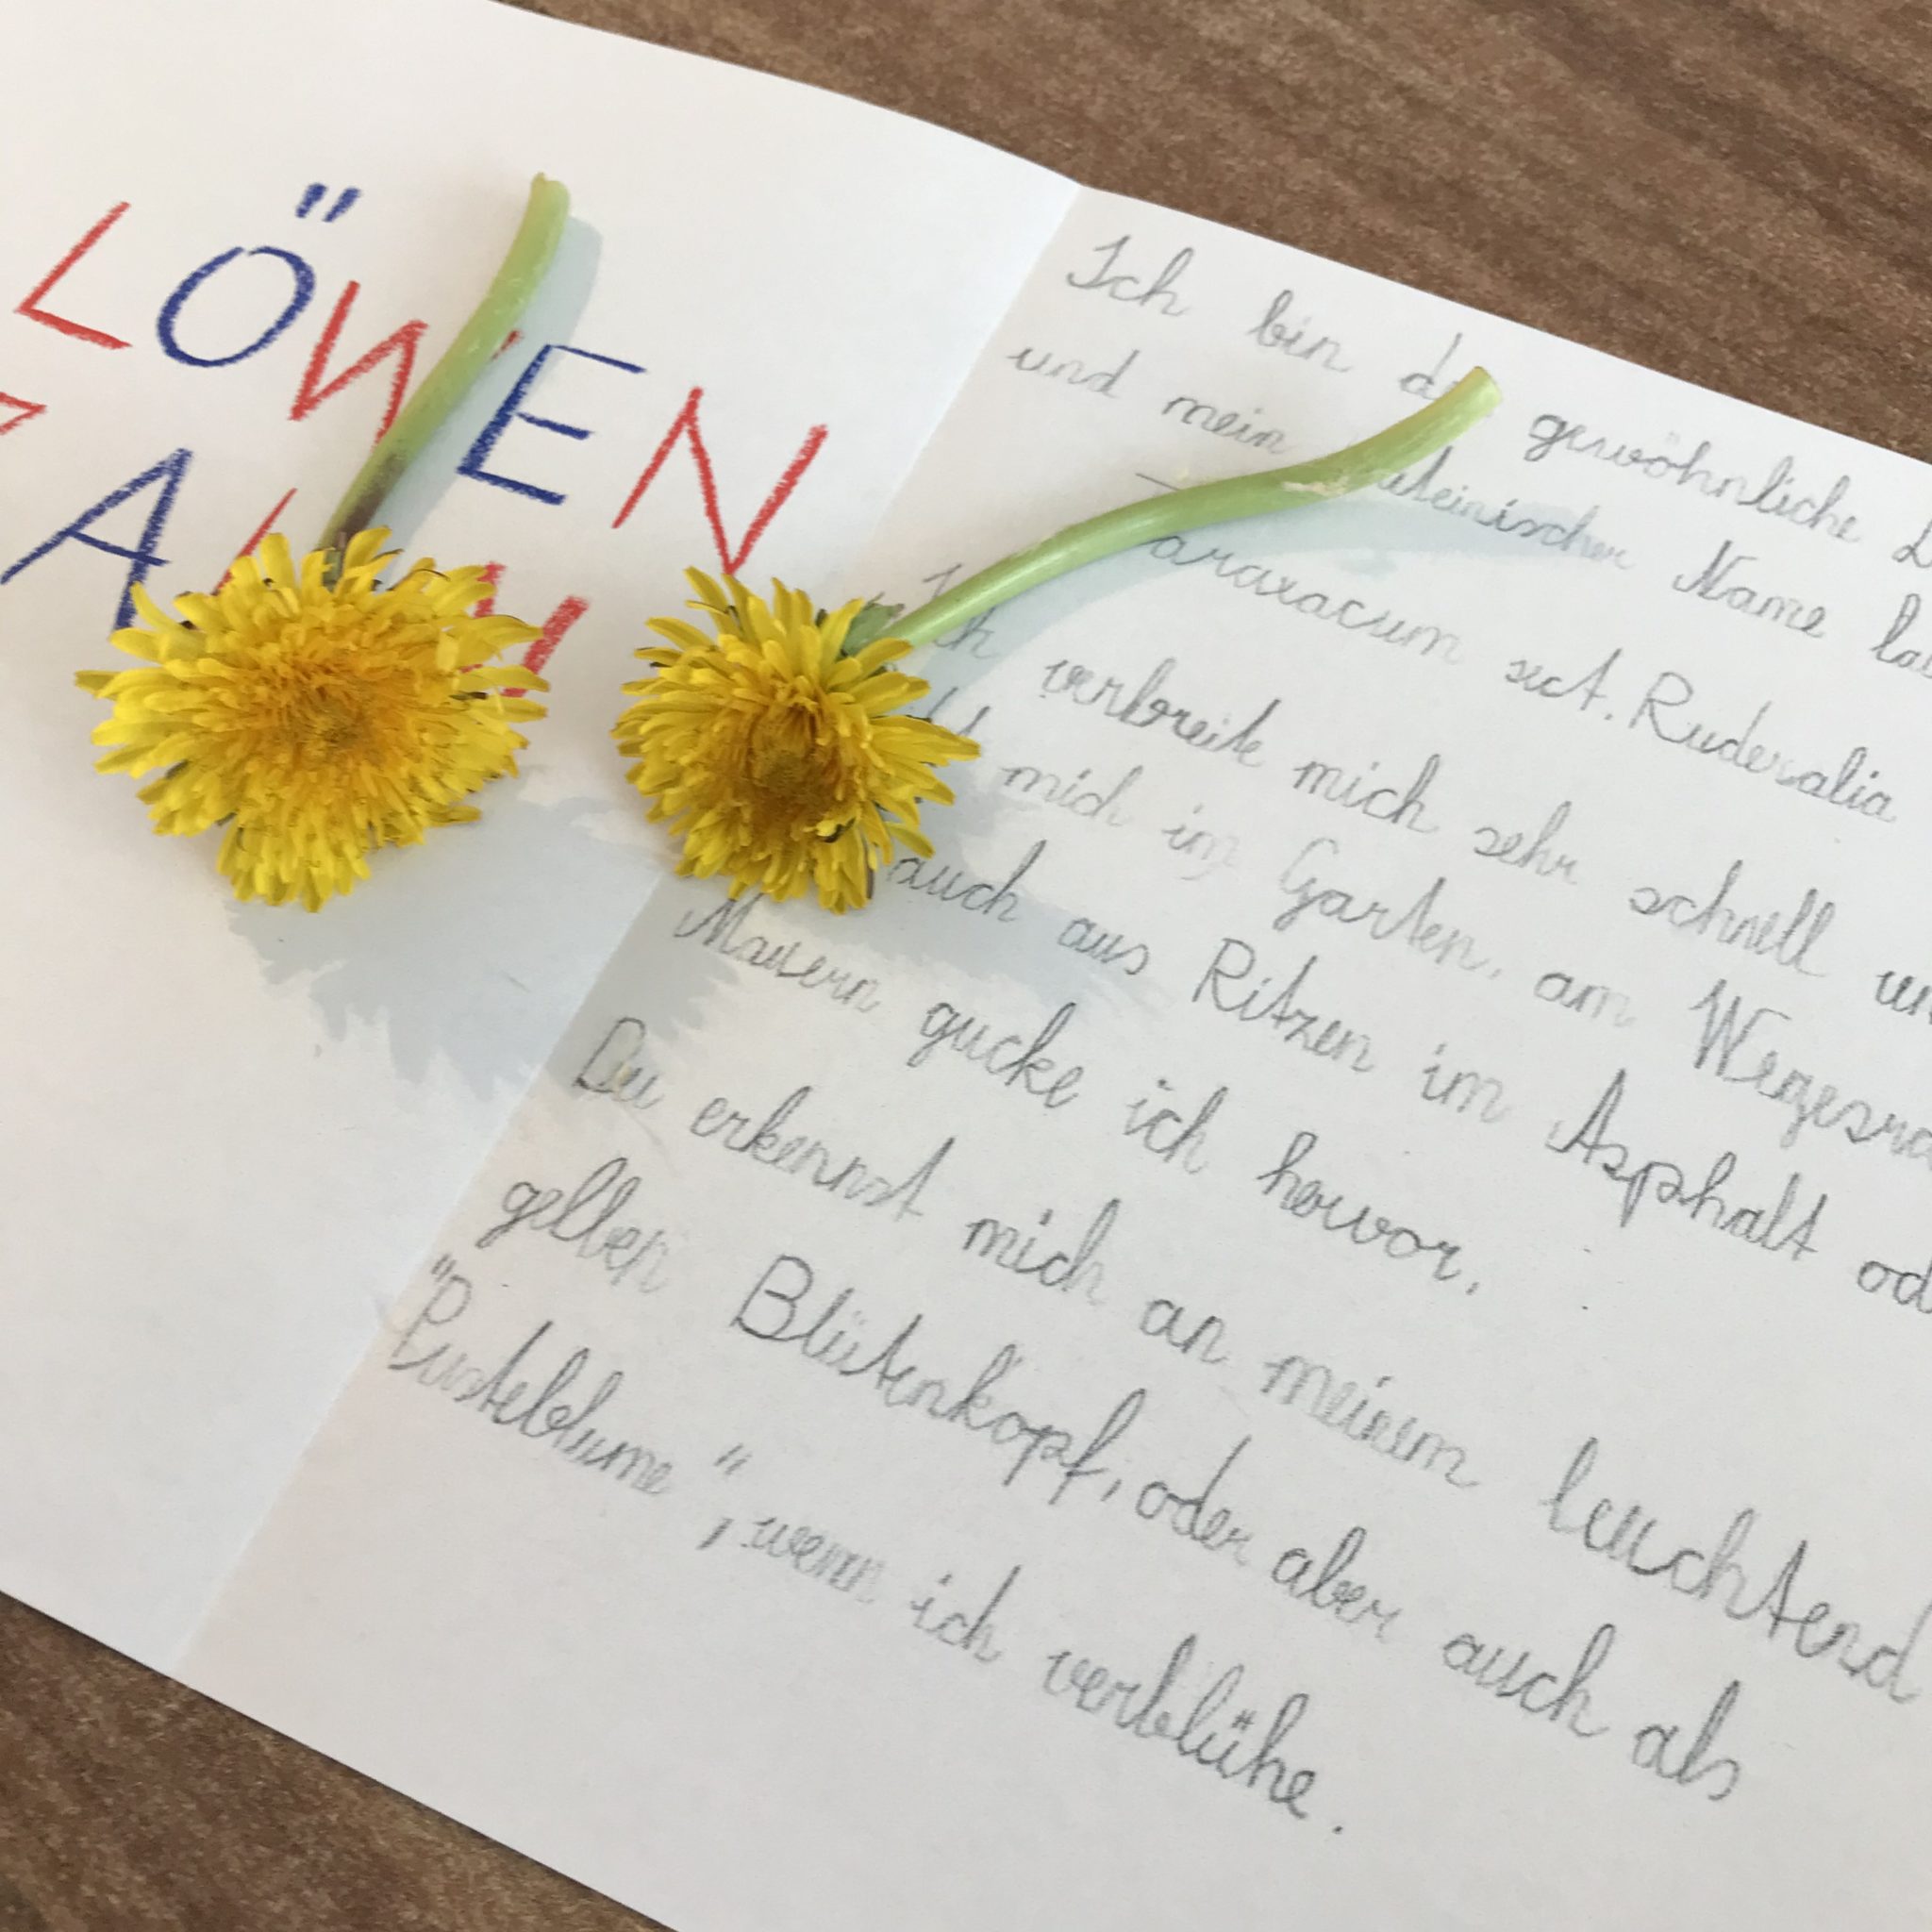 LÖWEN
ZAHN
Ich bin der gewöhnliche
und mein lateinischer Name
Taraxacum sect. Ruderalia
Ich verbreite mich sehr schnell
mich im Garten, am
auch aus Ritzen im Asphalt
Mauern gucke ich hervor.
Du erkennst mich an meinem leuchtend
gelben Blütenkopf, oder aber auch als
"Pusteblume", wenn ich verblühe.